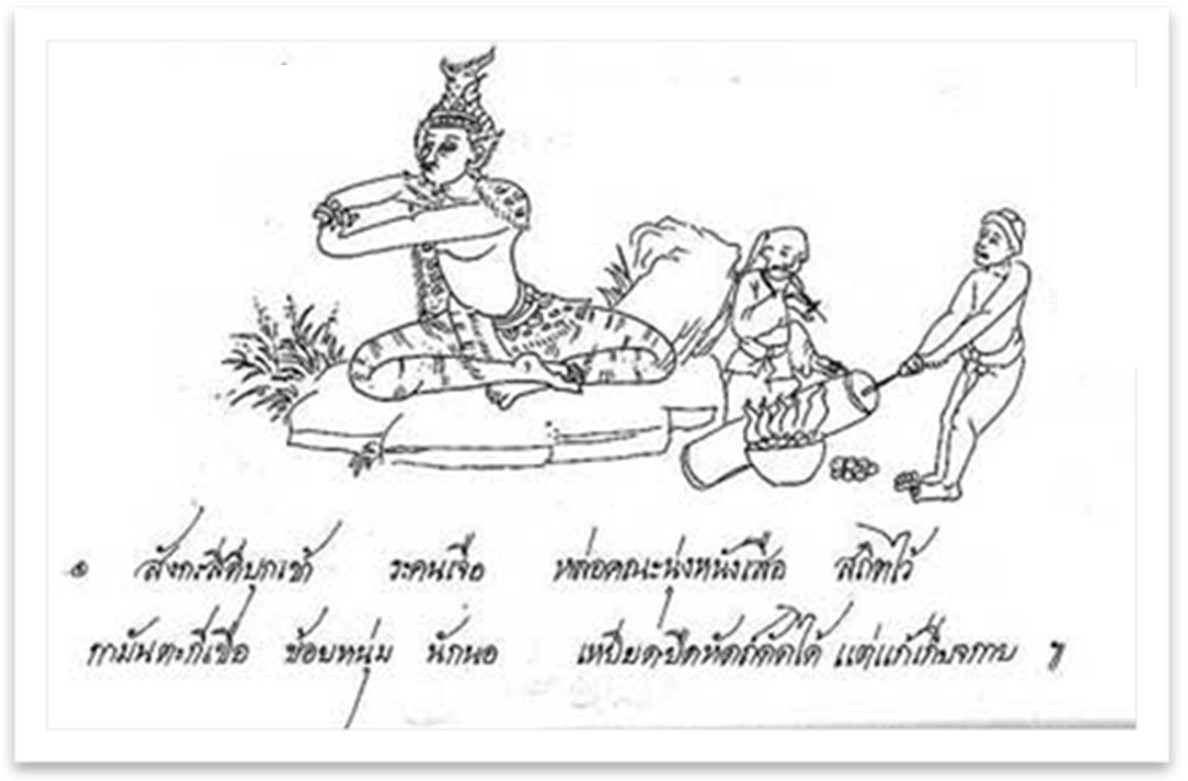 ๏ สังกะสีดีบุกเข้า ระคนเจือ หล่อคณะนุ่งหนังเสือ สถิตไว้
กามันตะกีเชื่อ ข้อยหนุ่ม นักนอ เหยียดดัดหัตถ์ดัดได้ แต่แก้เกียจกาย ฯ